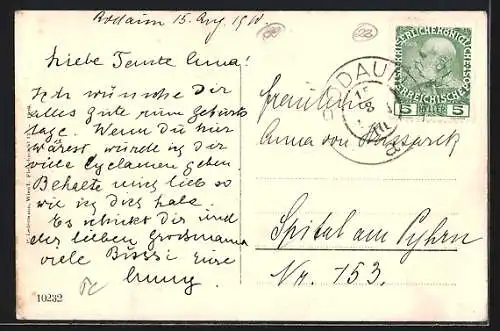 Rodaun 15. Aug. 1910.
Liebe Tante Anna!
Ich wünsche Dir
alles Gute zum Geburts
tage. Wenn Du hier
wärest, würde ich Dir
viele Cyclamen geben.
Behalte mich lieb so
wie ich Dich habe.
Es schickt Dir und
der lieben Grossmama
viele Bussi Eure
10232
22
KAISERLICHE KÖNIGLICHE
ÖSTERREICHISCHE
5 HELLER 5
RODAUN
15
8
Fräulein
Anna von
Spital am Pyhrn
Nr. 153.